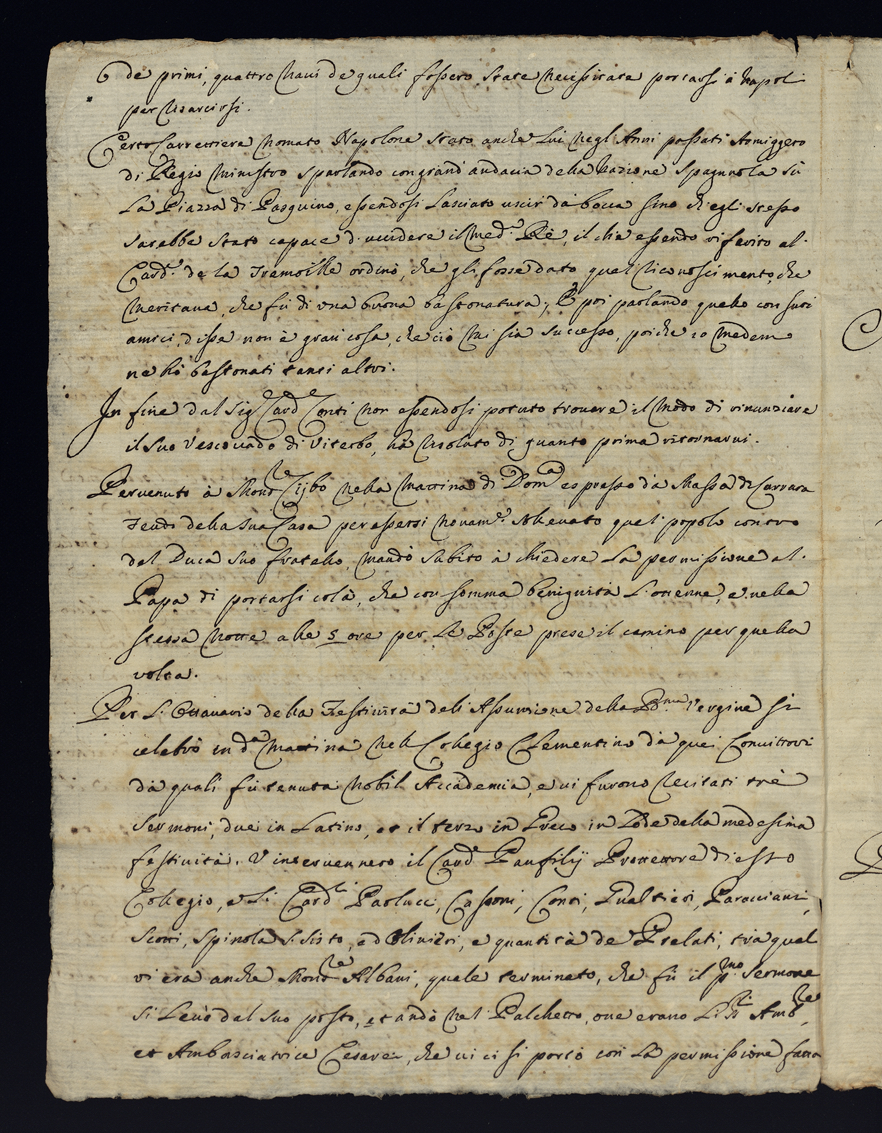 6 de primi, quattro Navi de quali fossero State Necessitate portarsi à Napoli
per Risarcirsi.
Certo Carrettiere Nomato Napolone Stato anche Lui Negl'Anni passati
di Regio Ministro Sparlando con grand'audacia della Nazione Spagnuola Sù
La Piazza di Pasquino, essendosi Lasciato uscir dà bocca sino ch'egli stesso
Sarebbe Stato capace d'uccidere il Med.º Rè, il che essendo riferito al
Card.l de la Tremoille ordinò, che gli fosse dato quel Riconoscimento, che
Meritava, che fù di una buona bastonatura, E poi parlando quello con suoi
amici, disse non è gran cosa, che ciò Mi sia Successo, poiche io Medem
ne hò bastonati tanti altri.
In fine dal Sig.r Card.e Conti Non essendosi potuto trovare il Modo di rinunziare
il Suo Vescovado di Viterbo, hà Risoluto di quanto prima ritornarvi.
Pervenuto à Mons.re Cybo Nella Mattina di Dom.ca espresso dà Massa di Carrara
Feudo della Sua Casa per essersi Novam.e Sollevato quel popolo contro
del Duca Suo fratello, Mandò Subito à chiedere La permissione al
Papa di portarsi colà, che con somma benignità L'ottenne, e nella
stessa Notte alle 5 ore per Le Poste prese il camino per quella
volta.
Per L'Ottavario della Festività dell'Assunzione della B.ma Vergine si
celebrò in d.a Mattina Nell Collegio Clementino dà quei Convittori
dà quali fù tenuta Nobil Accademia, e vi furono Recitati trè
Sermoni, due in Latino, et il terzo in Greco in Lode della medesima
festività. V'intervennero il Card.l Panfilij Protettore di esso
Collegio, e Li Card.li Paolucci, Casoni, Conti, Gualtieri, Paracciani,
Scotti, Spinola S. Sisto, ed Olivieri, e quantità de Prelati, trà quali
vi era anche Mons.re Albani, quale terminato, che fù il p.mo Sermone
Si Levò dal Suo posto, et andò Nel Palchetto, ove erano Li Amb.re
et Ambasciatrice Cesarei, che vi ci si portò con La permissione fatta